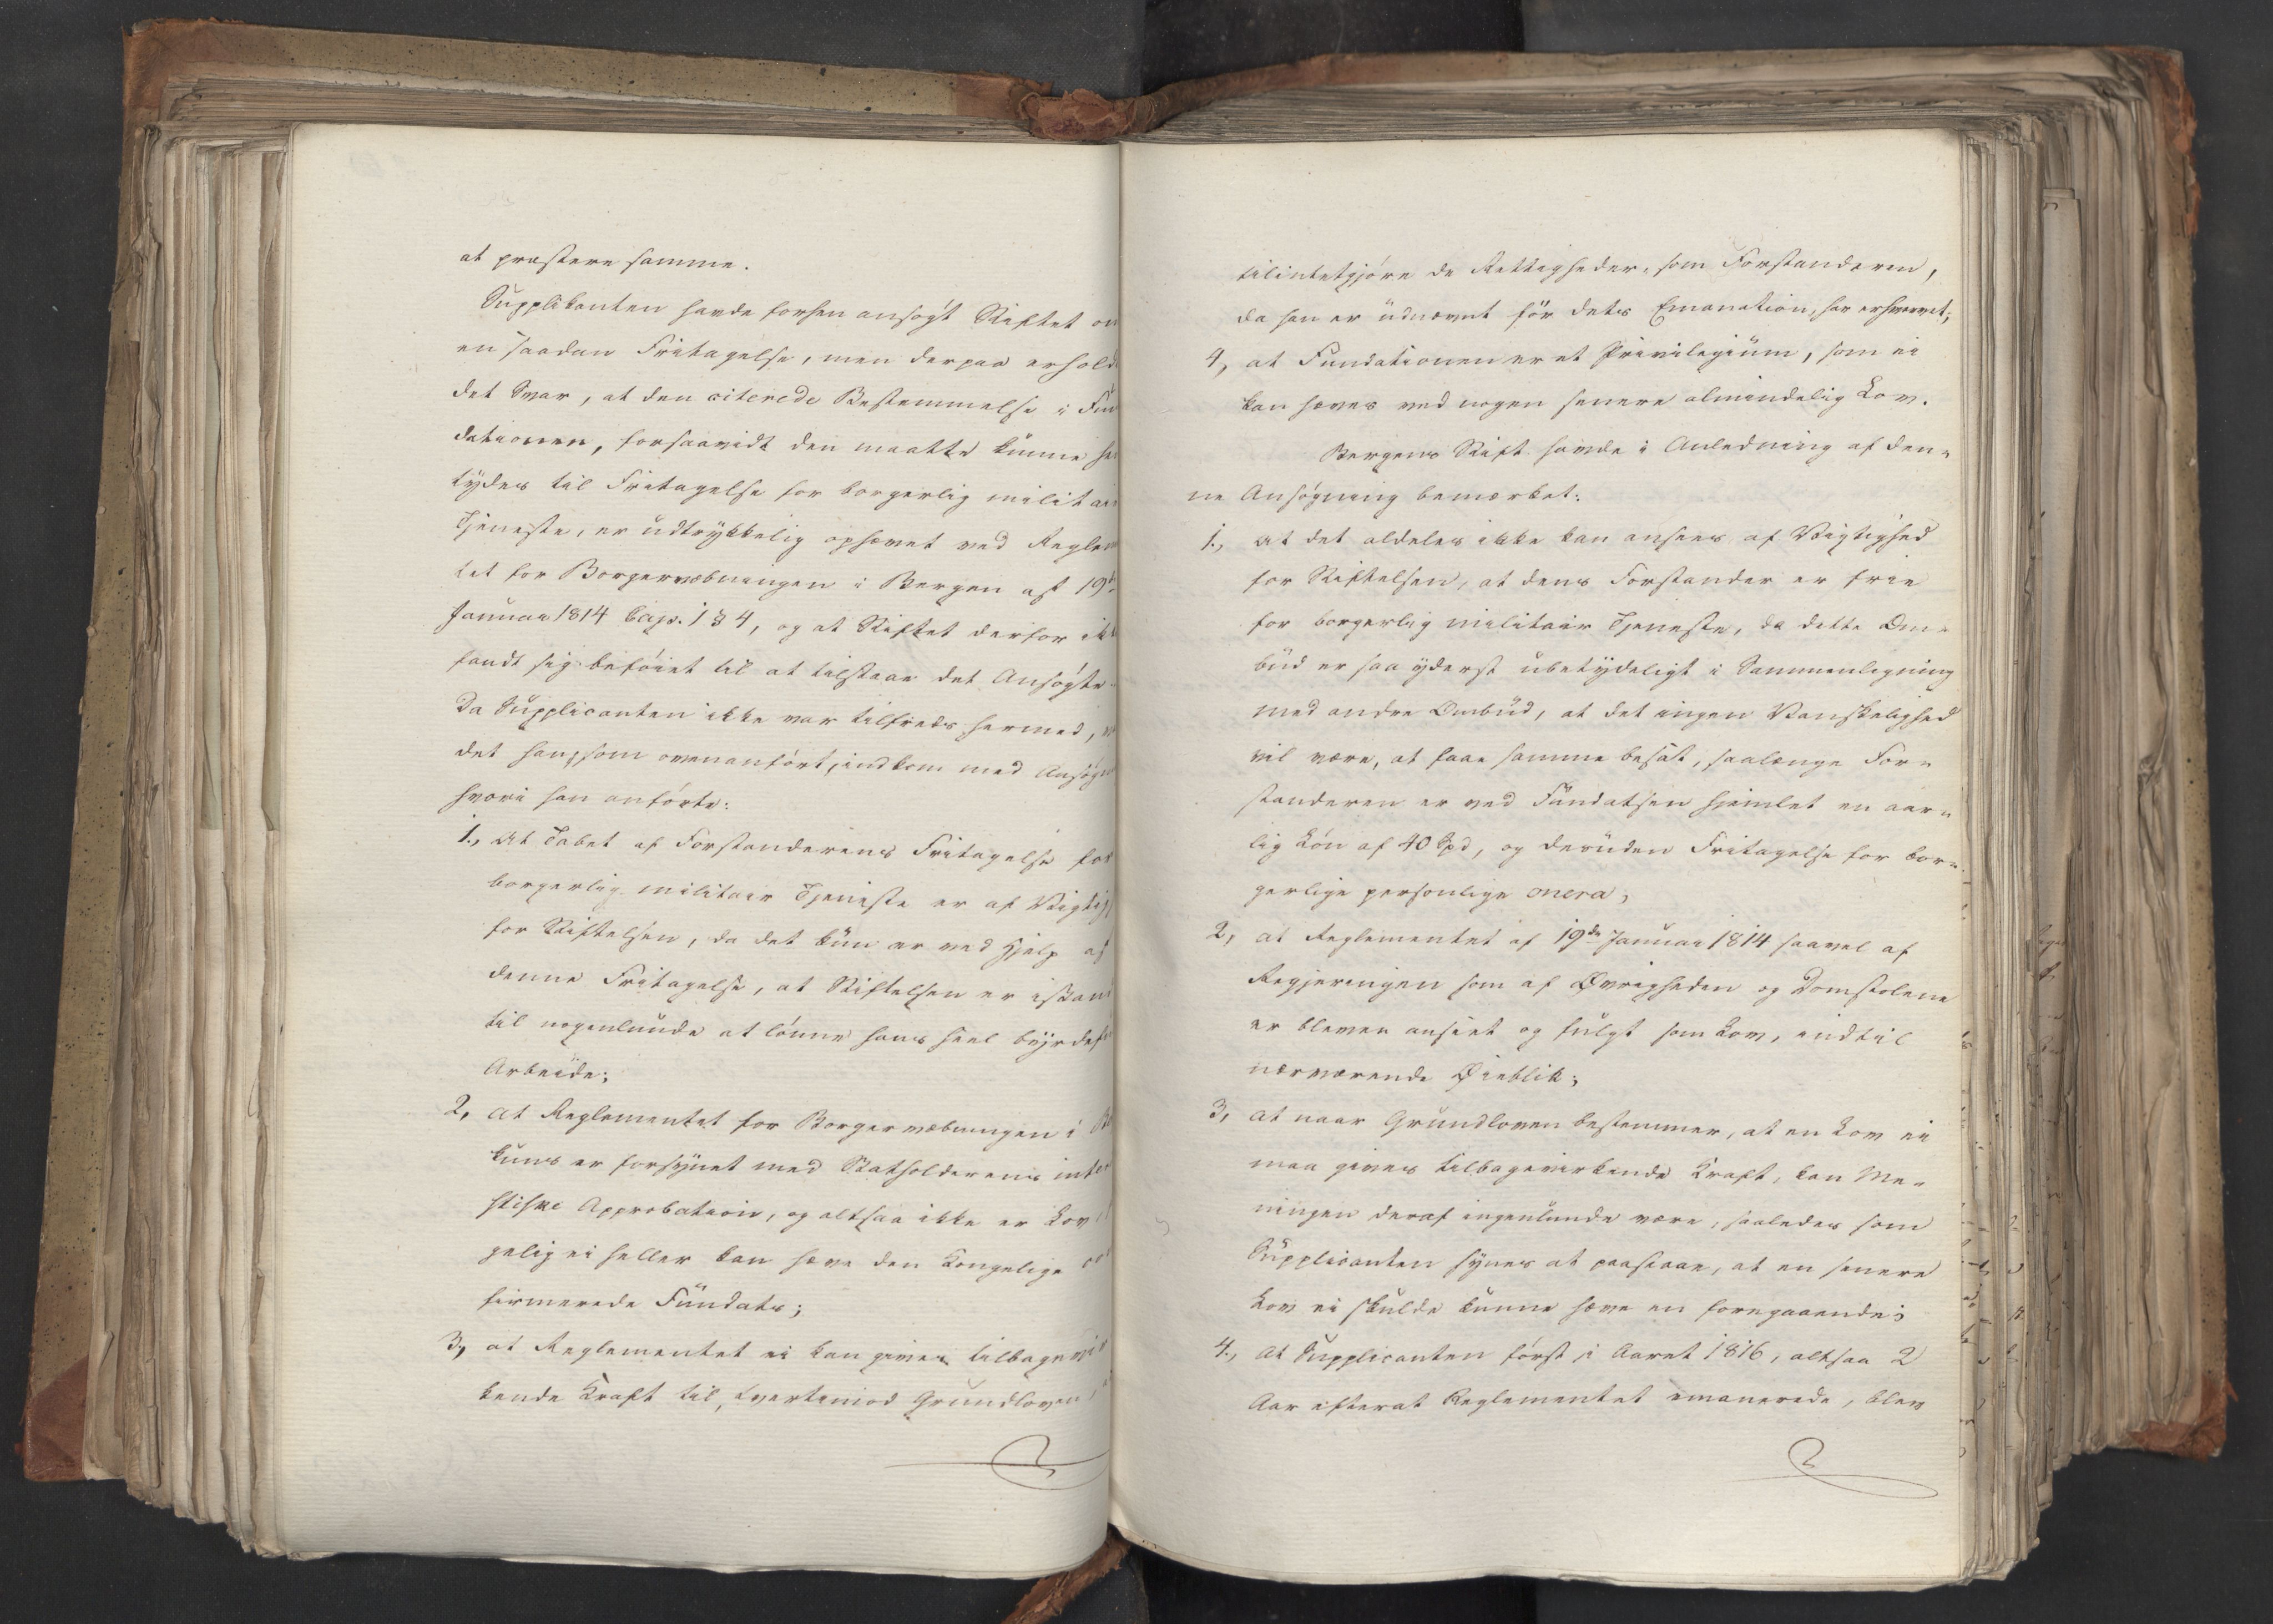 at præstere samme.
Supplikanten havde forhen ansøgt Stiftet om
en saadan Fritagelse, men derpaa erholdt
det Svar, at den citerede Bestemmelse i Fun
dationen, forsaavidt den maatte kunne hen
tydes til Fritagelse for borgerlig militair
Tjeneste, er udtrykkelig ophævet ved Reglem
tet for Borgervæbningen i Bergen af 19de
Januar 1814 Cap. 1 § 4, og at Stiftet derfor ikke
fandt sig beføiet til at tilstaae det Ansøgte.
Da Supplicanten ikke var tilfreds hermed, 
det han, som ovenanført, indkom med Ansøgn
hvori han anførte:
1., At Tabet af Forstanderens Fritagelse for
borgerlig militair Tjeneste er af Vigtig
for Stiftelsen, da det kun er ved Hjelp af
denne Fritagelse, at Stiftelsen er istand
til nogenlunde at lønne hans heel byrdef
Arbeide;
2, at Reglementet for Borgervæbningen i Be
kuns er forsynet med Statholderens inter
istiske Approbation, og altsaa ikke er Lov
gelig ei heller kan hæve den Kongelige con
firmerede Fundats;
3, at Reglementet ei kan gives tilbagevir
kende Kraft til, tvertimod Grundloven,
tilintetgjøre de Rettigheder, som Forstanderen,
da han er udnævnt før dets Emanation, har erhvervet;
4, at Fundationen er et Privilegium, som ei
kan hæves ved nogen senere almindelig Lov.
Bergens Stift havde i Anledning af den-
ne Ansøgning bemærket:
1., at det aldeles ikke kan ansees af Vigtighed
for Stiftelsen, at dens Forstander er frie
for borgerlig militair Tjeneste, da dette Om-
bud er saa yderst ubetydeligt i Sammenligning
med andre Ombud, at det ingen Vanskelighed
vil være, at faae samme besat, saalænge For-
standeren er ved Fundatsen hjemlet en aar-
lig Løn af 40 Spd, og desuden Fritagelse for bor-
gerlige personlige onera,
2, at Reglementet af 19de Januar 1814 saavel af
Regjeringen som af Øvrigheden og Domstolene
er bleven anseet og fulgt som Lov, indtil
nærværende Øieblik;
3, at naar Grundloven bestemmer, at en Lov ei
maa gives tilbagevirkende Kraft, kan Me-
ningen deraf ingenlunde være, saaledes som
Supplicanten synes at paastaae, at en senere
Lov ei skulde kunne hæve en foregaaende;
4., at Supplicanten først i Aaret 1816, altsaa 2
Aar efterat Reglementet emanerede, blev